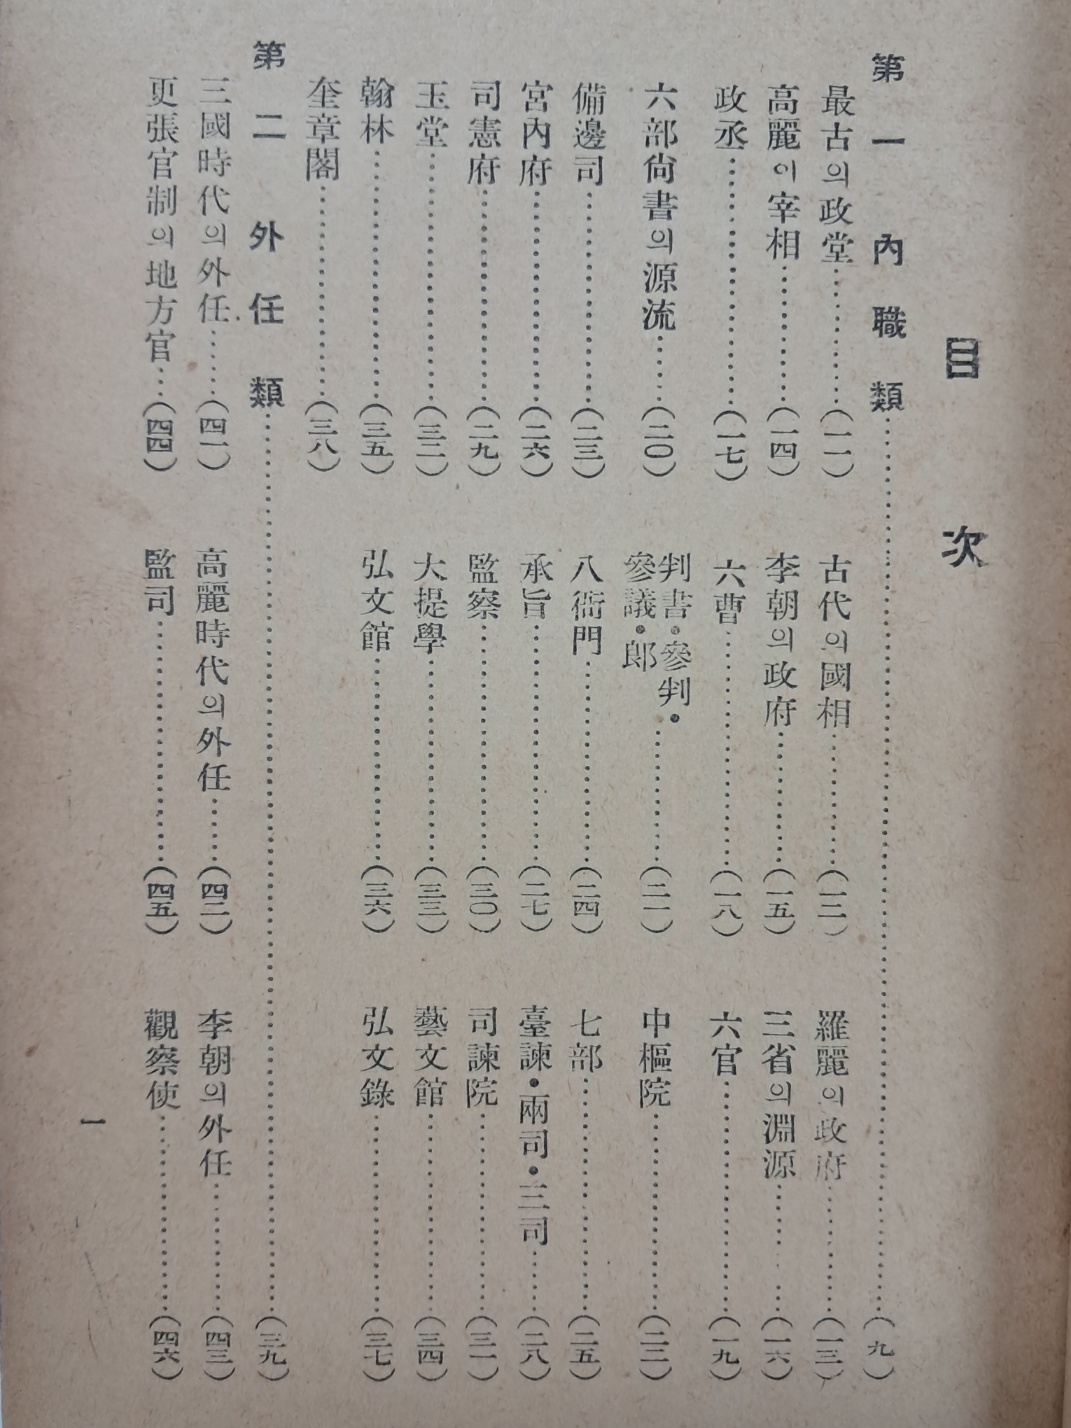 目次
第一 內職類……(九)
最古의政堂……(一一) 古代의國相……(一二) 羅麗의政府……(一三)
高麗이宰相……(一四) 李朝의政府……(一五) 三省의淵源……(一六)
政丞……(一七) 六曹……(一八) 六官……(一九)
六部尙書의源流……(二〇) 判書·參判·參議·郞……(二一) 中樞院……(二二)
備邊司……(二三) 八衙門……(二四) 七部……(二五)
宮內府……(二六) 承旨……(二七) 臺諫·兩司·三司……(二八)
司憲府……(二九) 監察……(三〇) 司諫院……(三一)
玉堂……(三二) 大提學……(三三) 藝文館……(三四)
翰林……(三五) 弘文館……(三六) 弘文錄……(三七)
奎章閣……(三八)
第二 外任類……(三九)
三國時代의外任……(四一) 高麗時代의外任……(四二) 李朝의外任……(四三)
更張官制의地方官…(四四) 監司……(四五) 觀察使……(四六)
一